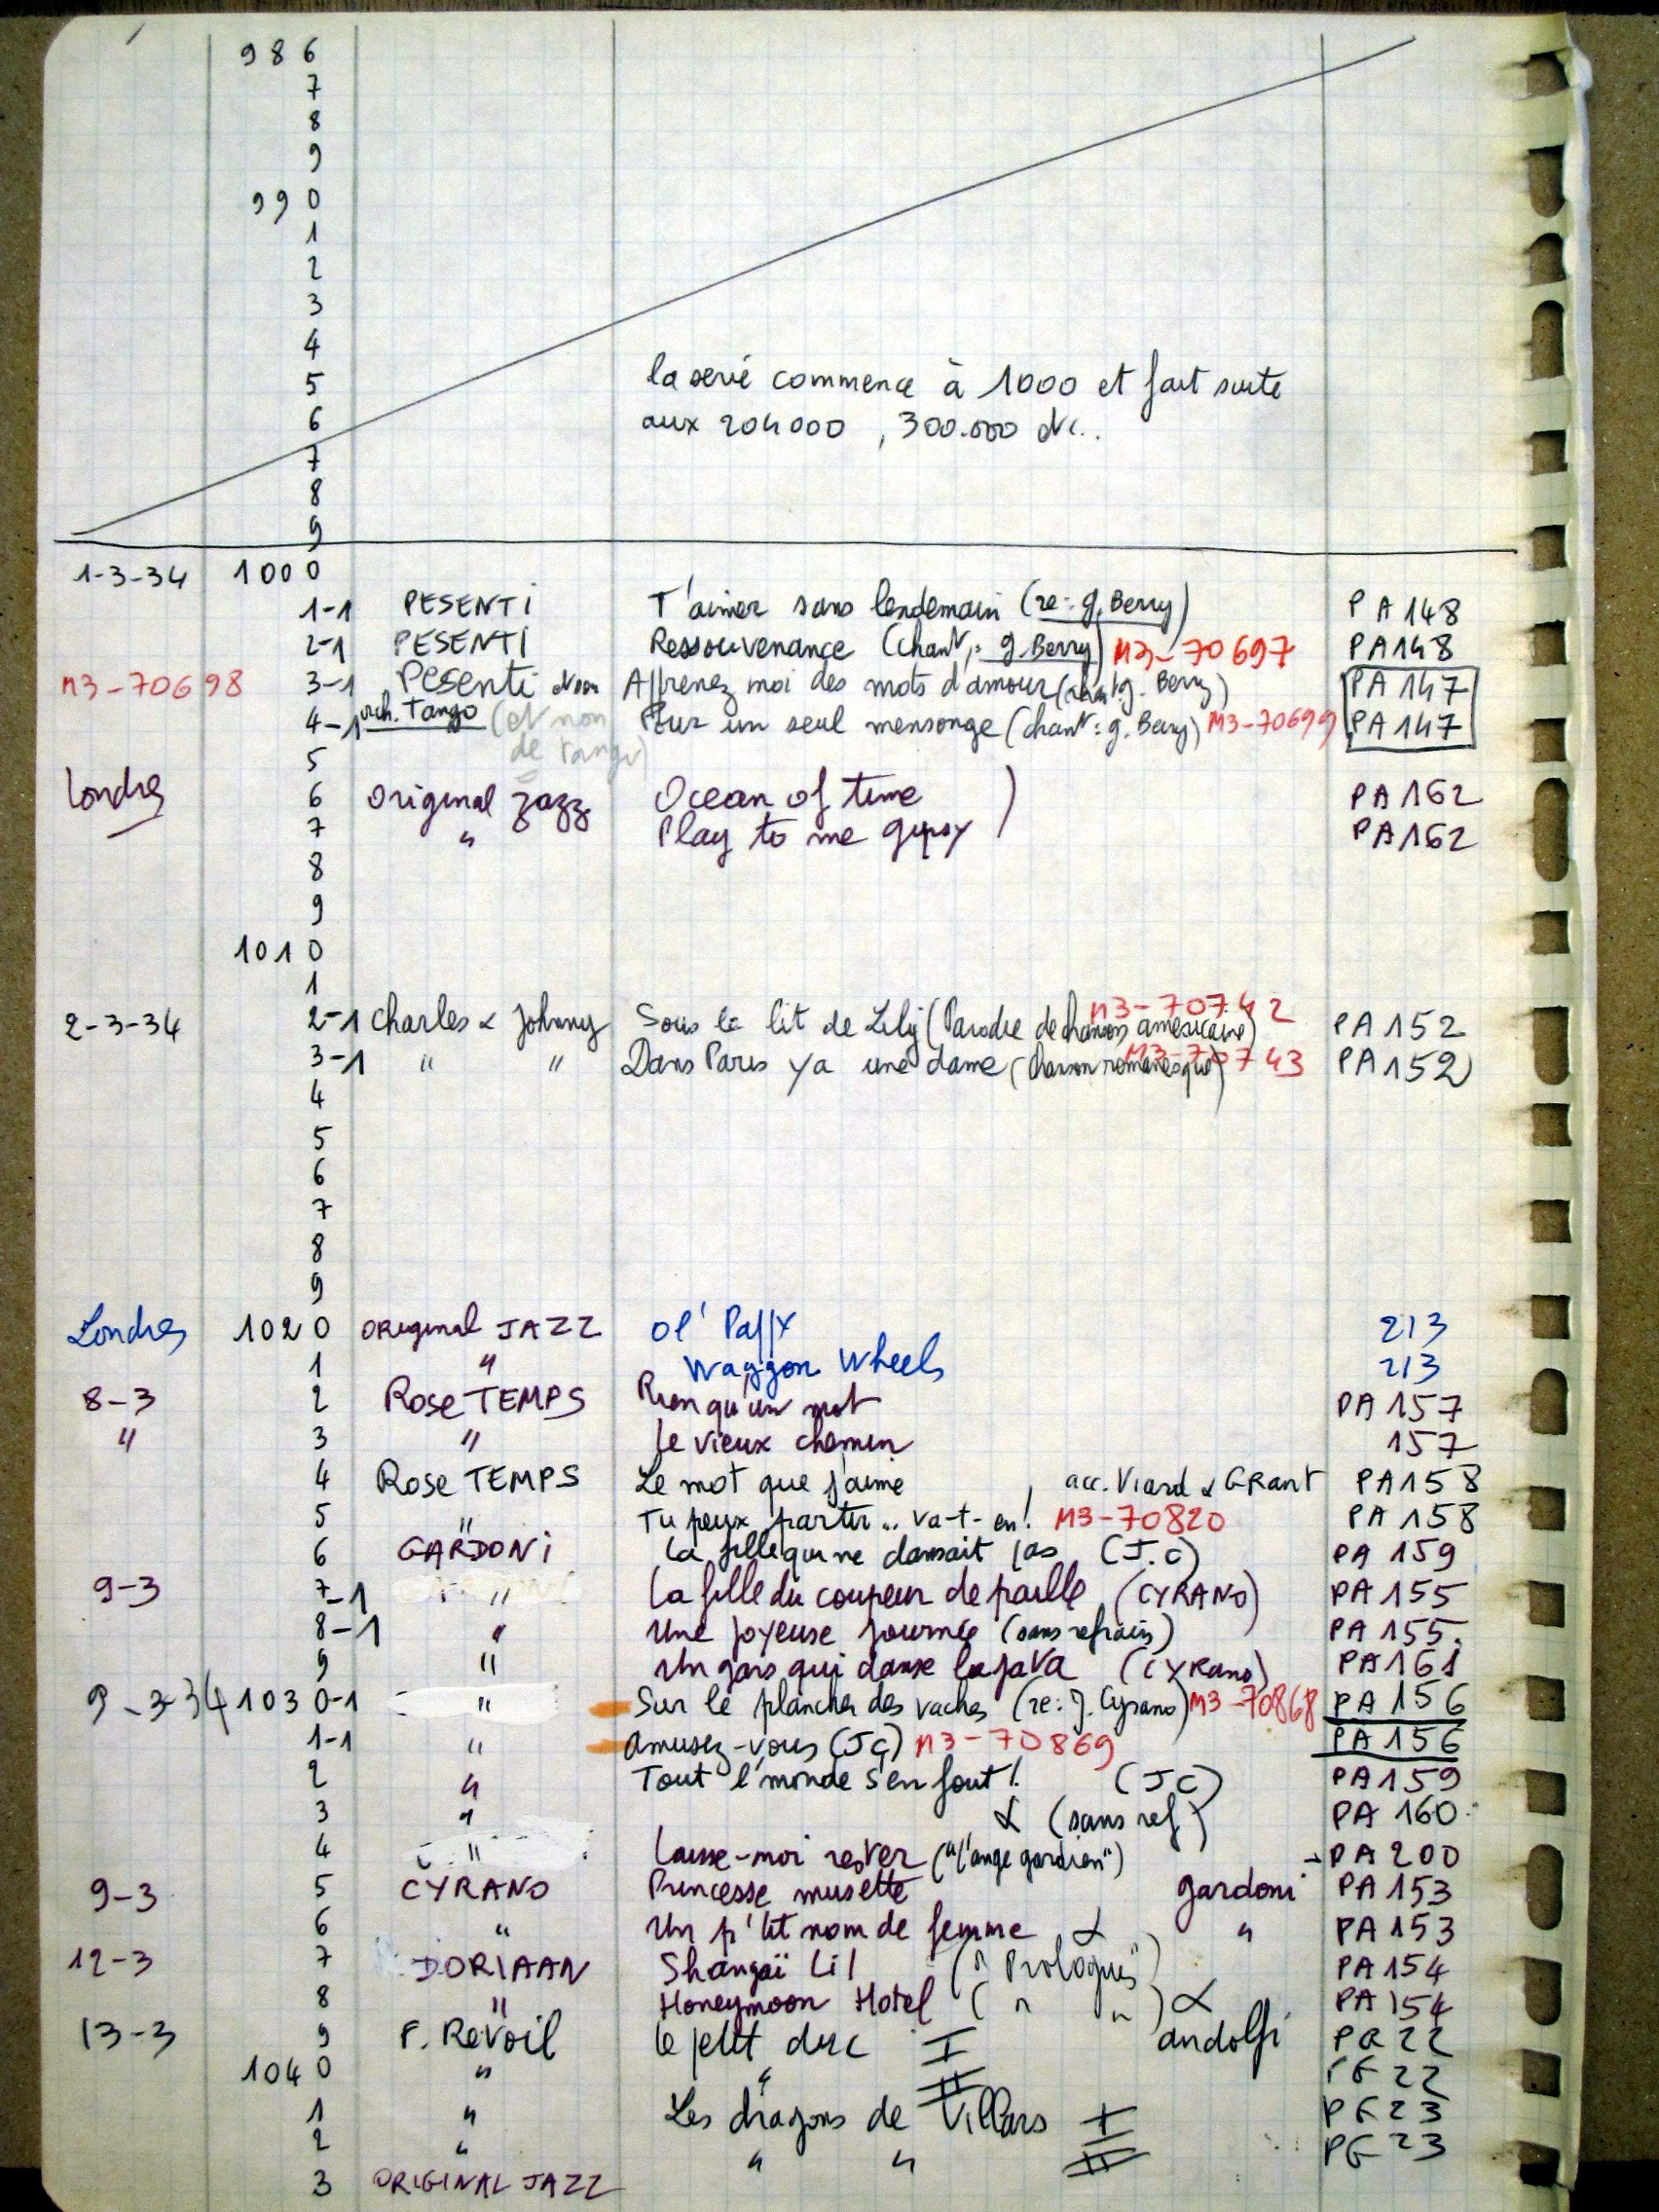 986
7
8
9
990
1
2
3
4
5
6
7
8
9
la serie commence à 1000 et fait suite
aux 204000, 300.000 etc..
1-3-34 1000
1-1 PESENTI T'aimer sans lendemain (re: g. Berry) PA148
2-1 PESENTI Ressouvenance (chant: g. Berry) M3-70697 PA148
M3-70698 3-1 Pesenti et son Apprenez moi des mots d'amour (chant g. Berry) PA147
4-1 orch. Tango (et non Pour un seul mensonge (chant: g. Berry) M3-70699 PA147
5 de tango)
Londres 6 Original Jazz Ocean of time ) PA162
7 " Play to me gipsy ) PA162
8
9
1010
1
2-3-34 2-1 Charles & Johnny Sous le lit de Lily (Parodie de chanson américaine) M3-70742 PA152
3-1 " " Dans Paris ya une dame (chanson romanesque) M3-70743 PA152
4
5
6
7
8
9
Londres 1020 ORiginal JAZZ Ol' Pappy 213
1 " Waggon Wheels 213
8-3 2 Rose TEMPS Rien qu'un mot PA157
" 3 " Le vieux chemin 157
4 Rose TEMPS Le mot que j'aime , acc. Viard & GRant PA158
5 " Tu peux partir... va-t-en! M3-70820 PA158
6 GARDONI La fille qui ne dansait pas (J.C) PA 159
9-3 7-1 " La fille du coupeur de paille (CYRANO) PA155
8-1 " Une joyeuse journée (sans refrain) PA 155.
9 " Un gars qui danse la java (CYRano) PA161
9-3-34 1030-1 " Sur le plancher des vaches (re: J. Cyrano) M3-70868 PA156
1-1 " amusez-vous (JC) M3-70869 PA156
2 " Tout l'monde s'en fout! (JC) PA159
3 " & (sans ref) PA 160
4 " Laisse-moi rester ("l'ange gardien") PA200
9-3 5 CYRANO Princesse musette gardoni PA153
6 " Un p'tit nom de femme & " PA153
12-3 7 DORIAAN Shangaï Lil (" Prologues") PA154
8 " Honeymoon Hotel ( " " ) & PA154
13-3 9 F. Revoil Le petit duc I andolfi PG22
1040 " " II PG22
1 " Les dragons de Villars I PG23
2 " " " II PG23
3 ORIGINAL JAZZ